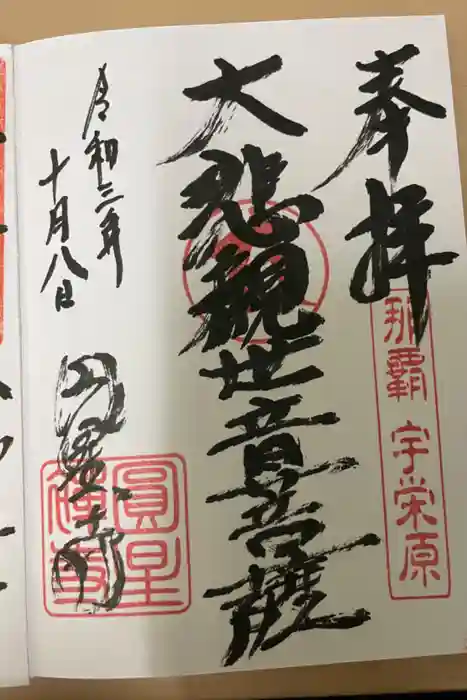 奉拝
那覇 宇栄原
大悲観世音菩薩
令和三年
十月八日
円星寺